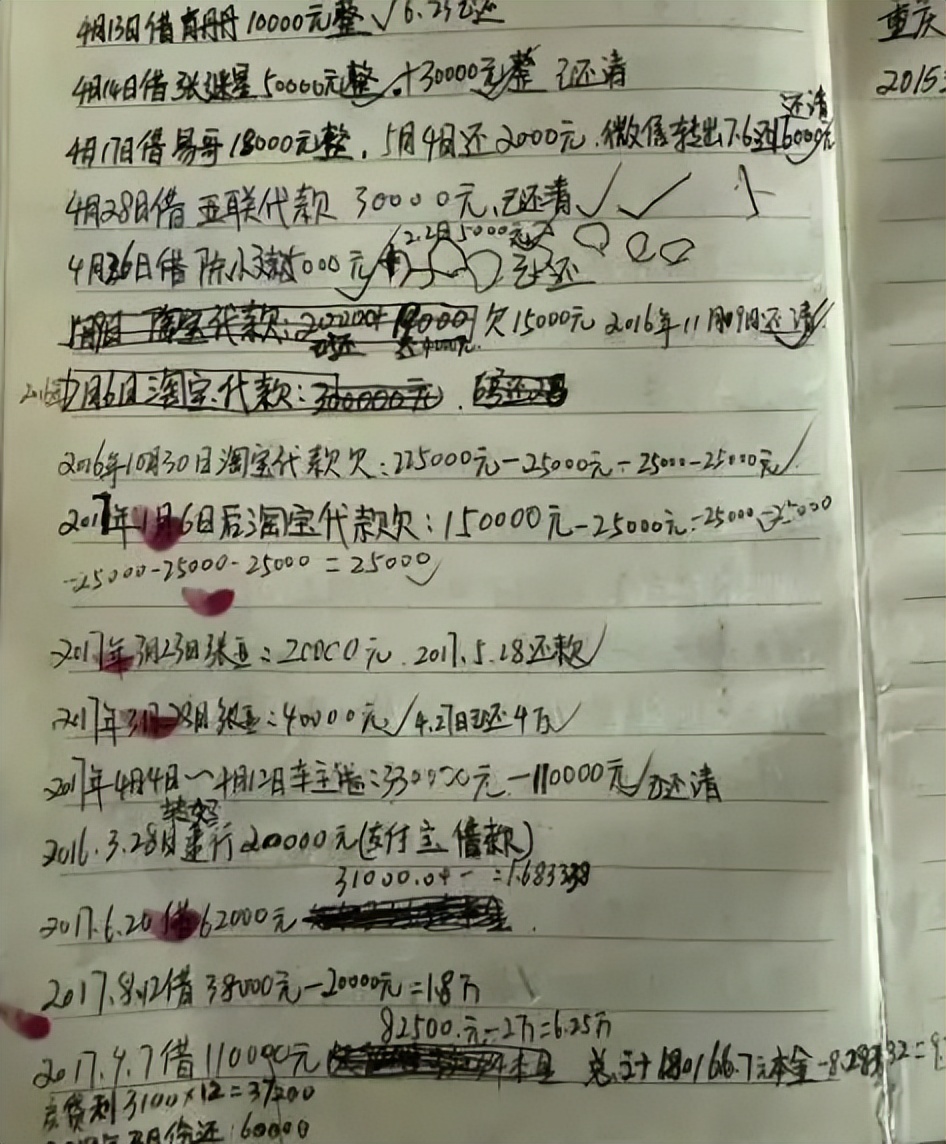 4月13日借肖丹丹10000元整√6.25已还
4月14日借张继星50000元整√+30000元整 已还清
还清
4月17日借易哥18000元整,5月4日还2000元.微信转出7.6还16000元
4月28日借亚联代款 30000元,已还清√√
2.2日5000元
4月26日借陈小 5000元 已还
淘宝代款: 欠15000元 2016年11月09日还清√
2016年 月6日淘宝代款:300000元.
2016年10月30日淘宝代款欠:225000元-25000元-25000-25000元√
2017年1月6日后淘宝代款欠:150000元-25000元-25000-25000
-25000-25000-25000=25000√
2017年3月23日张 :20000元.2017.5.28还款√
2017年3月28日张 :40000元√4.27日已还4万√
2017年4月4日~4月12日车主 :330000元-110000元√已还清
2016.3.28日建行200000元(支付宝借款)
31000.04 =1.683338
2017.6.20借62000元
2017.8.12借38000元-20000元=1.8万
82500.元-2万=6.25万
2017.9.7借110000元 本金 总计180166.7元本金-8.28
3100×12=37200
月份还60000
重庆
2015